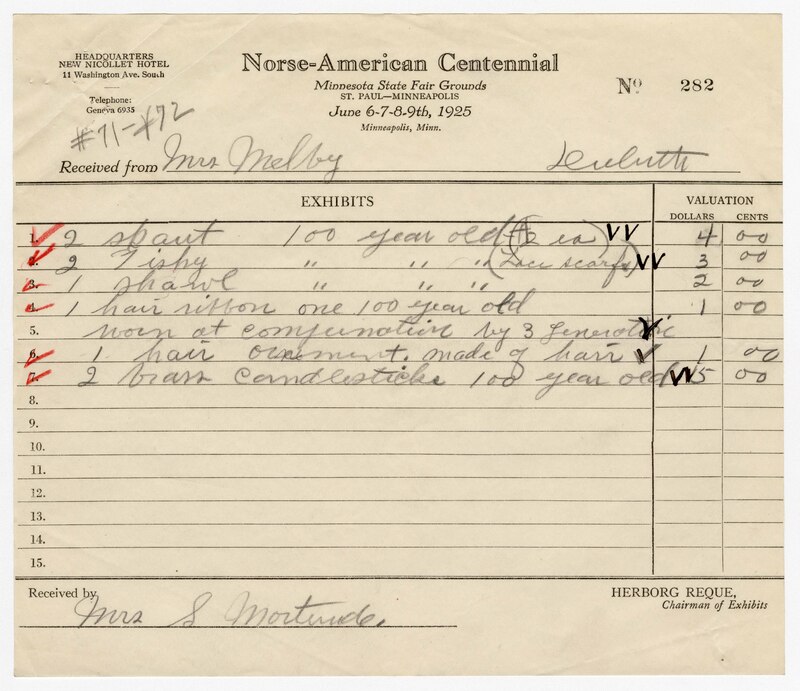 HEADQUARTERS
NEW NICOLLET HOTEL
11 Washington Ave. South
Telephone:
Geneva 6935
Norse-American Centennial
Minnesota State Fair Grounds
ST. PAUL—MINNEAPOLIS
June 6-7-8-9th, 1925
Minneapolis, Minn.
No 282
#71-#72
Received from Mrs Melby Duluth
EXHIBITS VALUATION
DOLLARS CENTS
1. 2 100 year old (2 ea) VV 4 00
2. 2 " " " (Lace scarfs) VV 3 00
3. 1 shawl " " " 2 00
4. 1 hair ribbon one 100 year old 1 00
5. worn at by 3 V
6. 1 hair made of hair V 1 00
7. 2 brass candlesticks 100 year old VV 5 00
8.
9.
10.
11.
12.
13.
14.
15.
Received by Mrs S
HERBORG REQUE,
Chairman of Exhibits